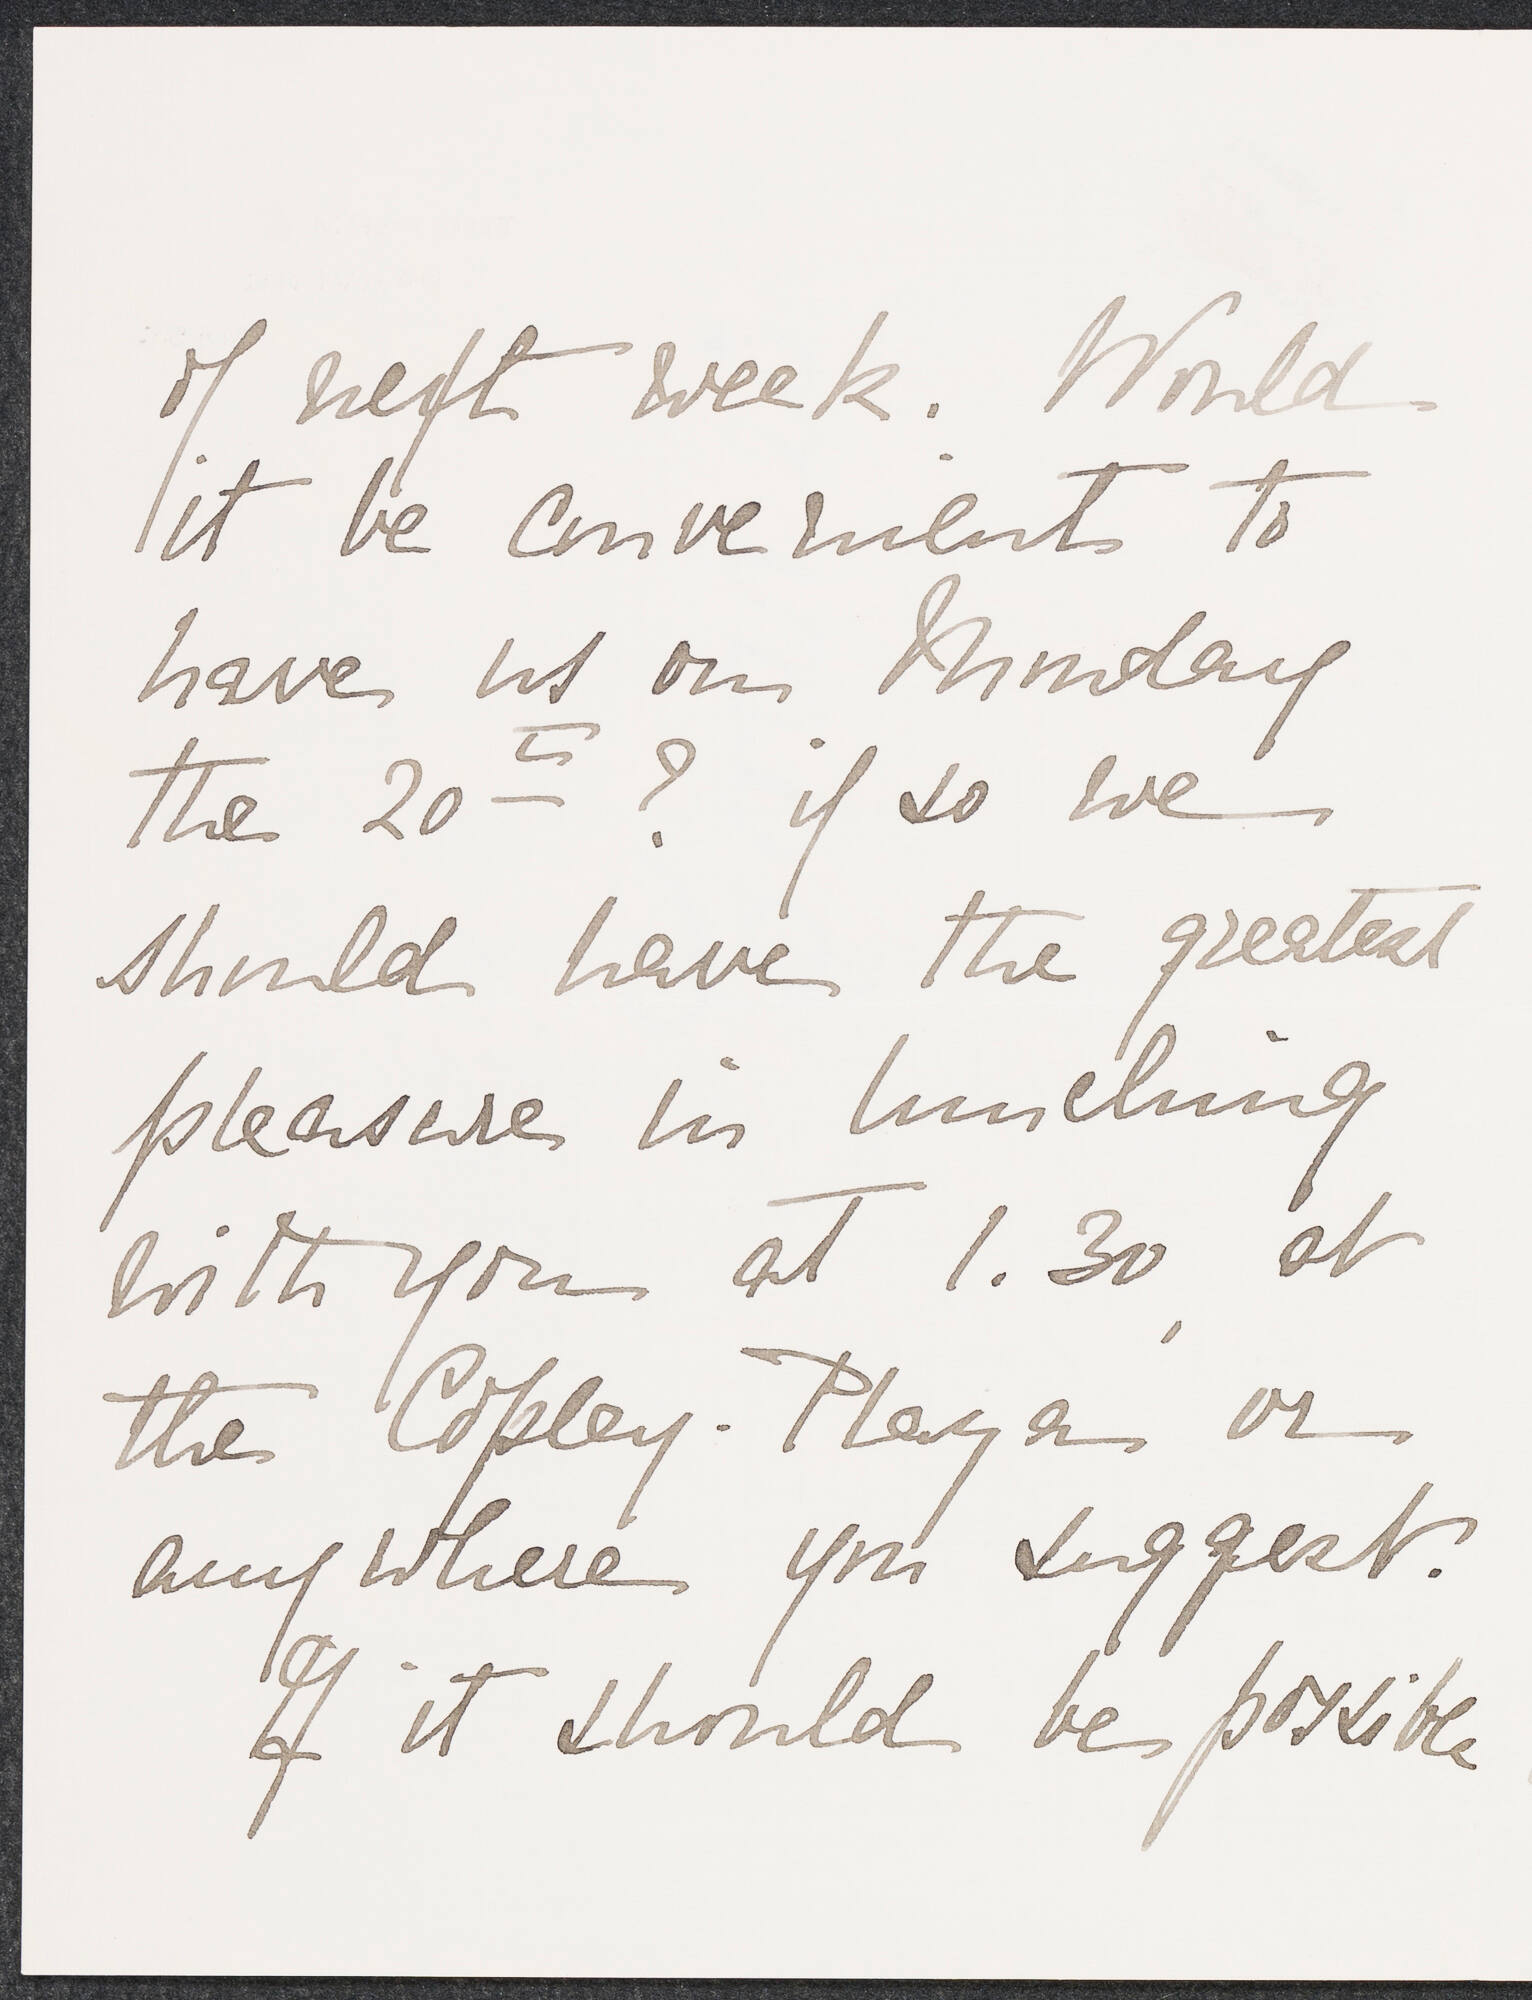 of next week. Would
it be convenient to
have us on Monday
the 20th? if so we
should have the greatest
pleasure in lunching
with you at 1.30, at
the Copley-Plaza or
anywhere you suggest.
If it should be possible